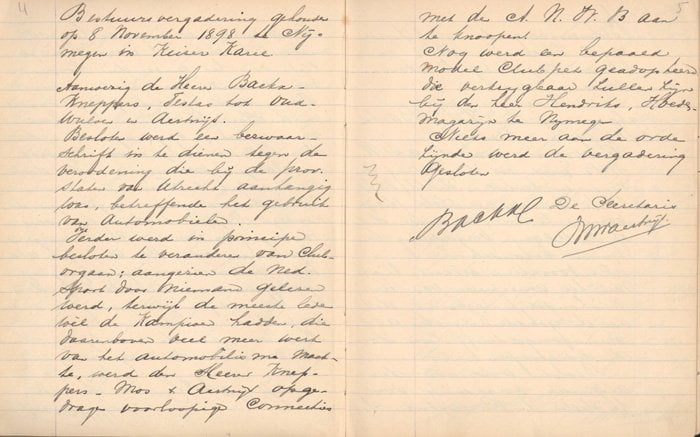 4
Bestuursvergadering gehouden
op 8 November 1898 te Nij-
megen in Keizer Karel
Aanwezig de Heeren Backx
Kneppers, Testas tot Oud-
Wulven en Aertnijs.
Besloten werd een bezwaar-
schrift in te dienen tegen de
verordening die bij de prov.
staten van Utrecht aanhangig
was, betreffende het gebruik
van Automobielen.
Verder werd in principe
besloten te veranderen van Club-
orgaan; aangezien de Ned.
Sport door niemand gelezen
werd, terwijl de meeste leden
wel de Kampioen hadden, die
daarenboven veel meer werk
van het automobilisme maak-
te, werd den Heeren Knep-
pers - Mos & Aertnijs opge-
dragen voorloopige Connecties
5
met de A. N. W. B aan
te knoopen.
Nog werd een bepaald
model Clubpet geadopteerd
die verkrijgbaar zullen zijn
bij den heer Hendriks, Hoede-
Magazijn te Nijmegen
Niets meer aan de orde
zijnde werd de vergadering
gesloten
De Secretaris
Backx